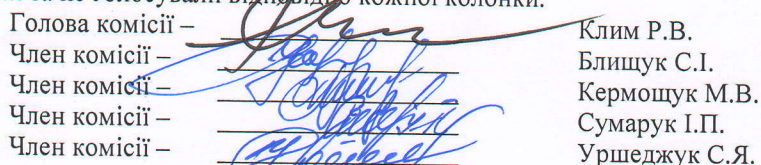 голосували відповідно кожної колонки.
Голова комісії – Клим Р.В.
Член комісії – Блищук С.І.
Член комісії – Кермощук М.В.
Член комісії – Сумарук І.П.
Член комісії – Уршеджук С.Я.